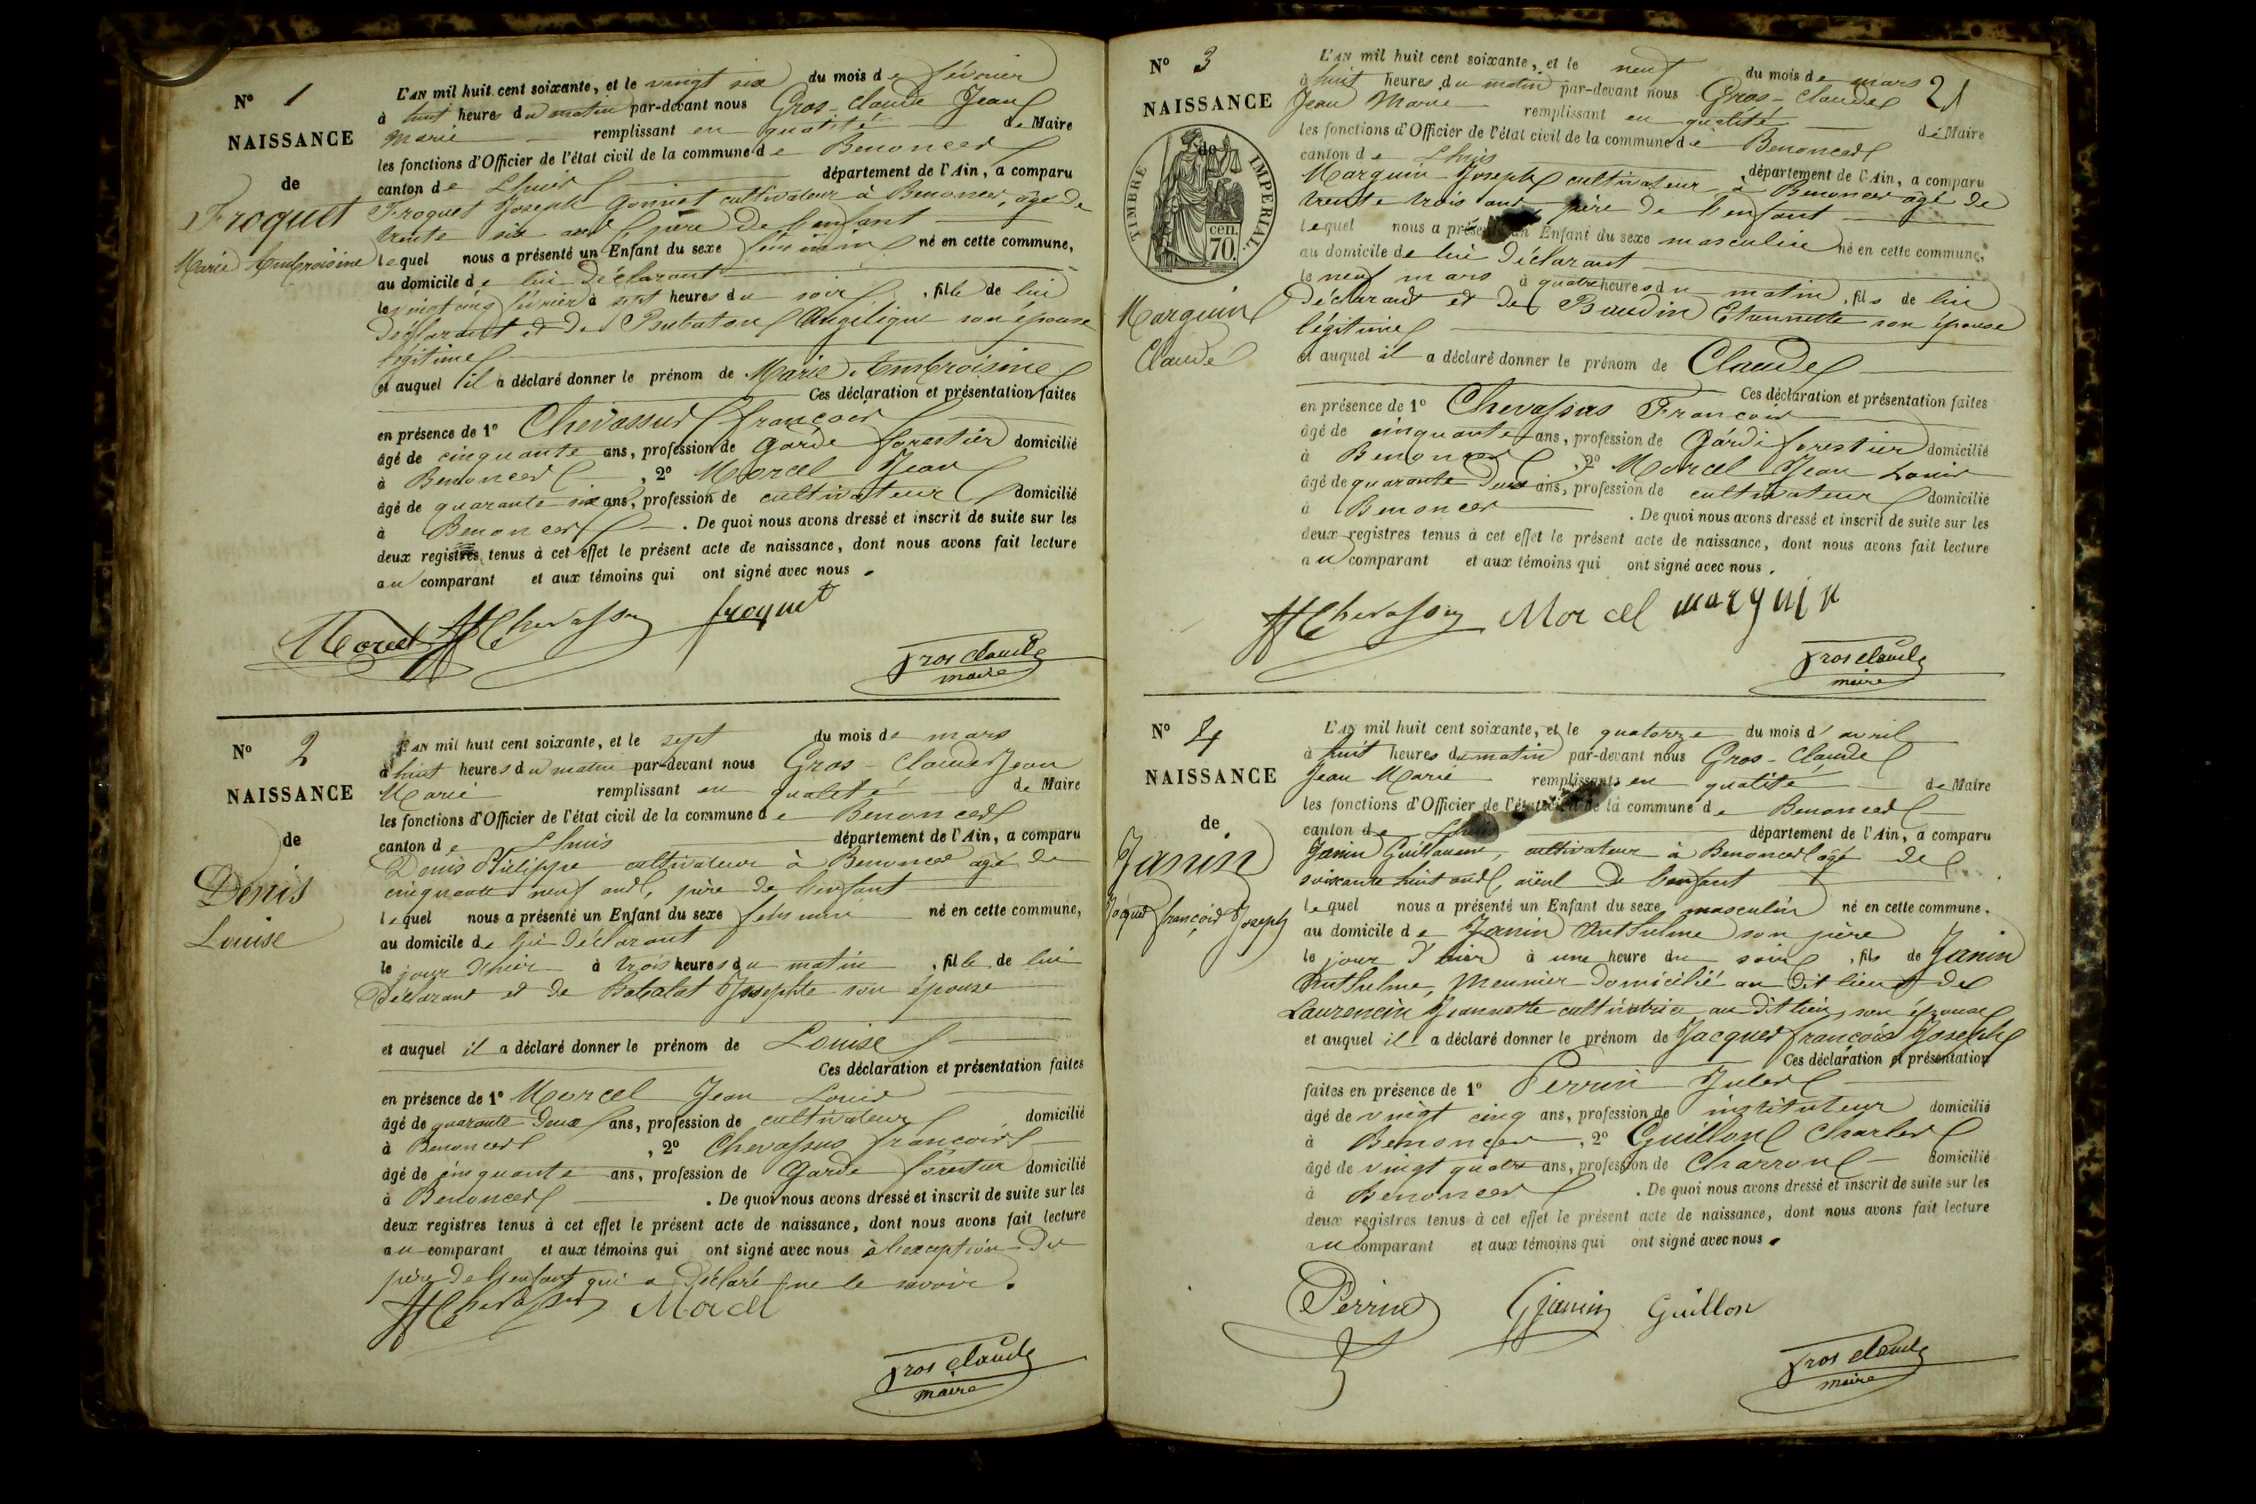 N° 1
NAISSANCE
de
Froquet
Marie Ambroisine
L'AN mil huit cent soixante, et le vingt six du mois de février
à huit heures du matin par-devant nous Gros-Claude Jean
Marie remplissant en qualité de Maire
les fonctions d'Officier de l'état civil de la commune de Benonces
canton de Lhuis département de l'Ain, a comparu
Froquet Joseph Gonnet cultivateur à Benonces, âgé de
trente six ans père de l'enfant
lequel nous a présenté un Enfant du sexe féminin né en cette commune,
au domicile de lui déclarant
le vingt cinq février à sept heures du soir, fille de lui
déclarant et de Angélique son épouse
légitime
et auquel il a déclaré donner le prénom de Marie Ambroisine
Ces déclaration et présentation faites
en présence de 1° Chevassus françois
âgé de cinquante ans, profession de garde forestier domicilié
à Benonces, 2° Morcel Jean
âgé de quarante six ans, profession de cultivateur domicilié
à Benonces. De quoi nous avons dressé et inscrit de suite sur les
deux registres tenus à cet effet le présent acte de naissance, dont nous avons fait lecture
au comparant et aux témoins qui ont signé avec nous.
Morcel Chevassus froquet
Gros claude
maire
N° 2
NAISSANCE
de
Denis
Louise
L'AN mil huit cent soixante, et le sept du mois de mars
à huit heures du matin par-devant nous Gros-Claude Jean
Marie remplissant en qualité de Maire
les fonctions d'Officier de l'état civil de la commune de Benonces
canton de Lhuis département de l'Ain, a comparu
Denis Philippe cultivateur à Benonces âgé de
cinquante neuf ans, père de l'enfant
lequel nous a présenté un Enfant du sexe féminin né en cette commune,
au domicile de lui déclarant
le jour d'hier à trois heures du matin, fille de lui
déclarant et de Babolat Josephte son épouse
et auquel il a déclaré donner le prénom de Louise
Ces déclaration et présentation faites
en présence de 1° Morcel Jean Louis
âgé de quarante deux ans, profession de cultivateur domicilié
à Benonces, 2° Chevassus françois
âgé de cinquante ans, profession de Garde forestier domicilié
à Benonces. De quoi nous avons dressé et inscrit de suite sur les
deux registres tenus à cet effet le présent acte de naissance, dont nous avons fait lecture
au comparant et aux témoins qui ont signé avec nous à l'exception du
père de l'enfant qui a déclaré ne le savoir.
Chevassus Morcel
Gros claude
maire
21
N° 3
NAISSANCE
de
TIMBRE IMPERIAL.
cen.
70.
Marguin
Claude
L'AN mil huit cent soixante, et le neuf du mois de mars
à huit heures du matin par-devant nous Gros-Claude
Jean Marie remplissant en qualité de Maire
les fonctions d'Officier de l'état civil de la commune de Benonces
canton de Lhuis département de l'Ain, a comparu
Marguin Joseph cultivateur à Benonces âgé de
trente trois ans père de l'enfant
lequel nous a présenté un Enfant du sexe masculin né en cette commune,
au domicile de lui déclarant
le neuf mars à quatre heures du matin, fils de lui
déclarant et de Baudin Etiennette son épouse
légitime
et auquel il a déclaré donner le prénom de Claude
Ces déclaration et présentation faites
en présence de 1° Chevassus François
âgé de cinquante ans, profession de Garde forestier domicilié
à Benonces, 2° Morcel Jean Louis
âgé de quarante deux ans, profession de cultivateur domicilié
à Benonces. De quoi nous avons dressé et inscrit de suite sur les
deux registres tenus à cet effet le présent acte de naissance, dont nous avons fait lecture
au comparant et aux témoins qui ont signé avec nous.
Chevassus Morcel marguin
Gros claude
maire
N° 4
NAISSANCE
de
Janin
Jacques françois Joseph
L'AN mil huit cent soixante, et le quatorze du mois d'avril
à huit heures du matin par-devant nous Gros-Claude
Jean Marie remplissant en qualité de Maire
les fonctions d'Officier de l'état civil de la commune de Benonces
canton de Lhuis département de l'Ain, a comparu
Janin Guillaume, cultivateur à Benonces âgé de
soixante huit ans, aïeul de l'enfant
lequel nous a présenté un Enfant du sexe masculin né en cette commune.
au domicile de Janin Anthelme son père
le jour d'hier à une heure du soir, fils de Janin
Anthelme, Meunier domicilié au dit lieu et de
Laurencin Jeannette cultivatrice au dit lieu, son épouse
et auquel il a déclaré donner le prénom de Jacques françois Joseph
Ces déclaration et présentation
faites en présence de 1° Perrin Jules
âgé de vingt cinq ans, profession de instituteur domicilié
à Benonces, 2° Guillon Charles
âgé de vingt quatre ans, profession de Charron domicilié
à Benonces. De quoi nous avons dressé et inscrit de suite sur les
deux registres tenus à cet effet le présent acte de naissance, dont nous avons fait lecture
au comparant et aux témoins qui ont signé avec nous.
Perrin Gjanin Guillon
Gros claude
maire